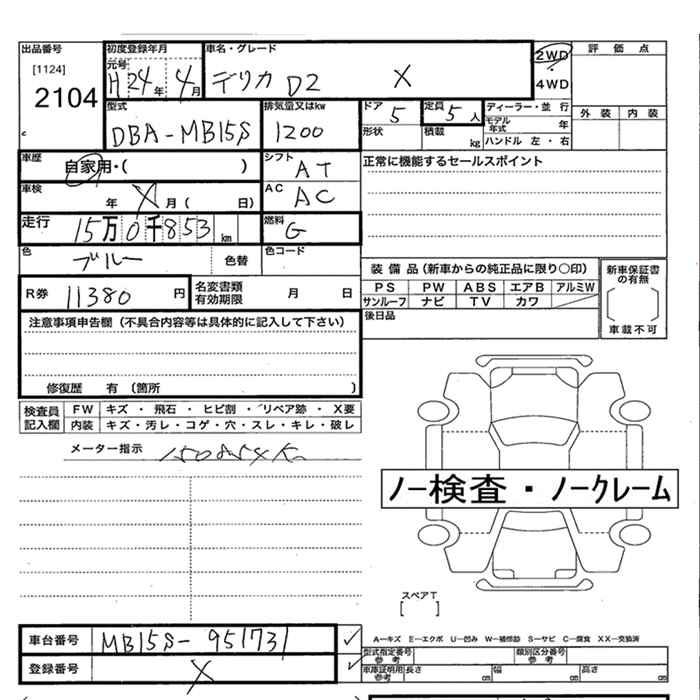 出品番号 初度登録年月 車名・グレード 2WD 評価点
[1124] 元号 H24年4月 デリカ D2 X ・
2104 4WD
型式 排気量又はkw ドア 5 定員 5人 ディーラー・並 行 外装 内装
C DBA-MB15S 1200 形状 積載 kg モデル年式 年
ハンドル 左・右
車歴 自家用・( ) シフト AT 正常に機能するセールスポイント
車検 年 X 月 ( 日) AC AC
走行 15万0千853km 燃料 G
色 ブルー 色替 色コード
装備品(新車からの純正品に限り○印) 新車保証書の有無
R券 11380 円 名変書類有効期限 月 日 PS PW ABS エアB アルミW
サンルーフ ナビ TV カワ
後日品 車載不可
注意事項申告欄(不具合内容等は具体的に記入して下さい)
修復歴 有 (箇所 )
検査員記入欄 FW キズ・飛石・ヒビ割・リペア跡・X要
内装 キズ・汚レ・コゲ・穴・スレ・キレ・破レ
メーター指示
ノー検査・ノークレーム
スペアT
[ ]
車台番号 MB15S-951731 A-キズ E-エクボ U-凹み W-補修跡 S-サビ C-腐食 XX-交換済
型式指定番号 参考 類別区分番号 参考
登録番号 X 車庫証明用 参考 長さ cm 幅 cm 高さ cm